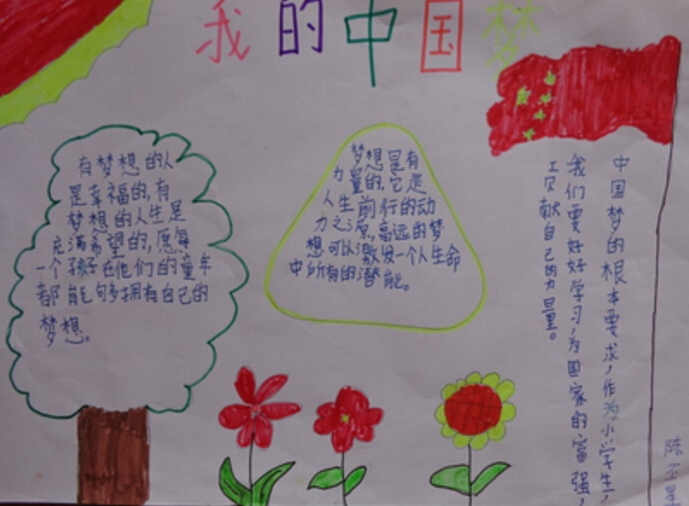 我的中国梦
有梦想的人
是幸福的,有
梦想的人生是
充满希望的,愿每
一个孩子在他们的童年
都能够拥有自己的
梦想。
梦想是有
力量的,它是
人生前行的动
力之源,高远的梦
想可以激发一个人生命
中所有的潜能。
中国梦的根本要求,作为小学生,
我们要好好学习,为国家的富强,
贡献自己的力量。
陈